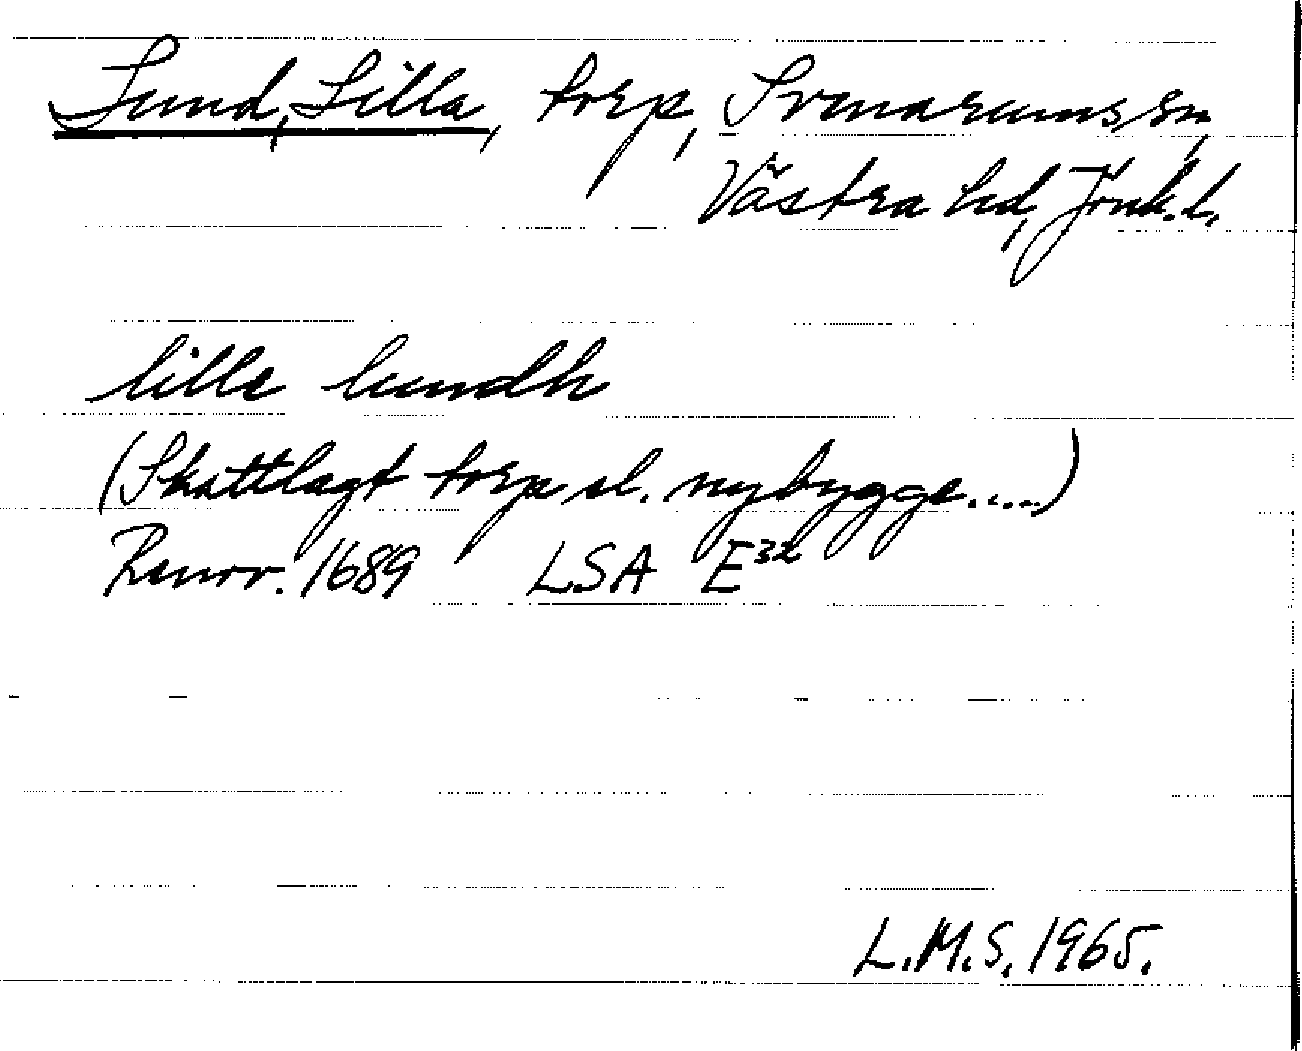 Lund, Lilla, torp, Svenarums sn,
Västra hd, Jönk. l.
lille lundh
(Skattlagt torp el. nybygge.....)
Renov. 1689 LSA E32
L.M.S. 1965.